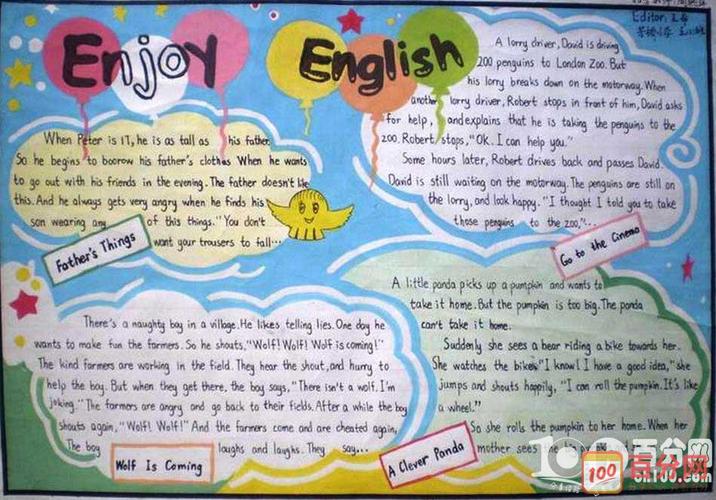 Enjoy English
Editor:
When Peter is 17, he is as tall as his father.
So he begins to boorow his father's clothes When he wants
to go out with his friends in the evening. The father doesn't like
this. And he always gets very angry when he finds his
son wearing any of this things. "You don't
want your trousers to fall...
Father's Things
A lorry driver, David is driving
200 penguins to London Zoo. But
his lorry breaks down on the motorway. When
another lorry driver, Robert stops in front of him, David asks
for help, and explains that he is taking the penguins to the
zoo. Robert stops, "OK. I can help you."
Some hours later, Robert drives back and passes David.
David is still waiting on the motorway. The penguins are still on
the lorry, and look happy. "I thought I told you to take
those penguins to the zoo,"...
Go to the Cinema
There's a naughty boy in a village. He likes telling lies. One day he
wants to make fun the farmers. So he shouts, "Wolf! Wolf! Wolf is coming!"
The kind farmers are working in the field. They hear the shout, and hurry to
help the boy. But when they get there, the boy says, "There isn't a wolf. I'm
joking." The farmers are angry and go back to their fields. After a while the boy
shouts again, "Wolf! Wolf!" And the farmers come and are cheated again,
The boy laughs and laughs. They say...
Wolf Is Coming
A little panda picks up a pumpkin and wants to
take it home. But the pumpkin is too big. The panda
can't take it home.
Suddenly she sees a bear riding a bike towards her.
She watches the bike. "I know! I have a good idea," she
jumps and shouts happily, "I can roll the pumpkin. It's like
a wheel."
So she rolls the pumpkin to her home. When her
mother sees
A Clever Panda
100
百分网